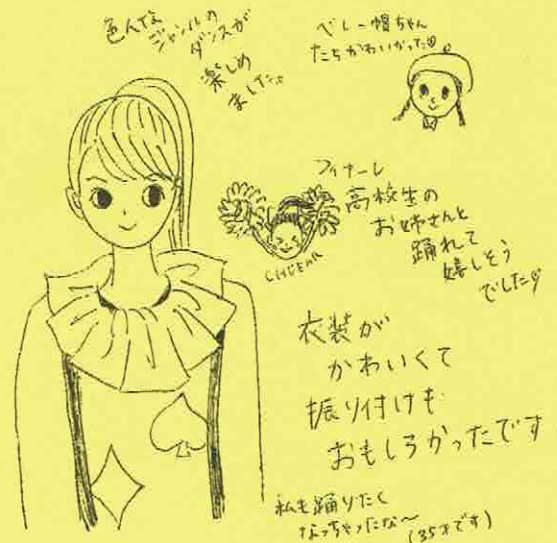 色んな
ジャンルの
ダンスが
楽しめ
ました。
ベレー帽ちゃん
たちかわいかった
フィナーレ
高校生の
お姉さんと
踊れて
嬉しそう
でした
CHEER
衣装が
かわいくて
振り付けも
おもしろかったです
私も踊りたく
なっちゃったな〜
(35才です)